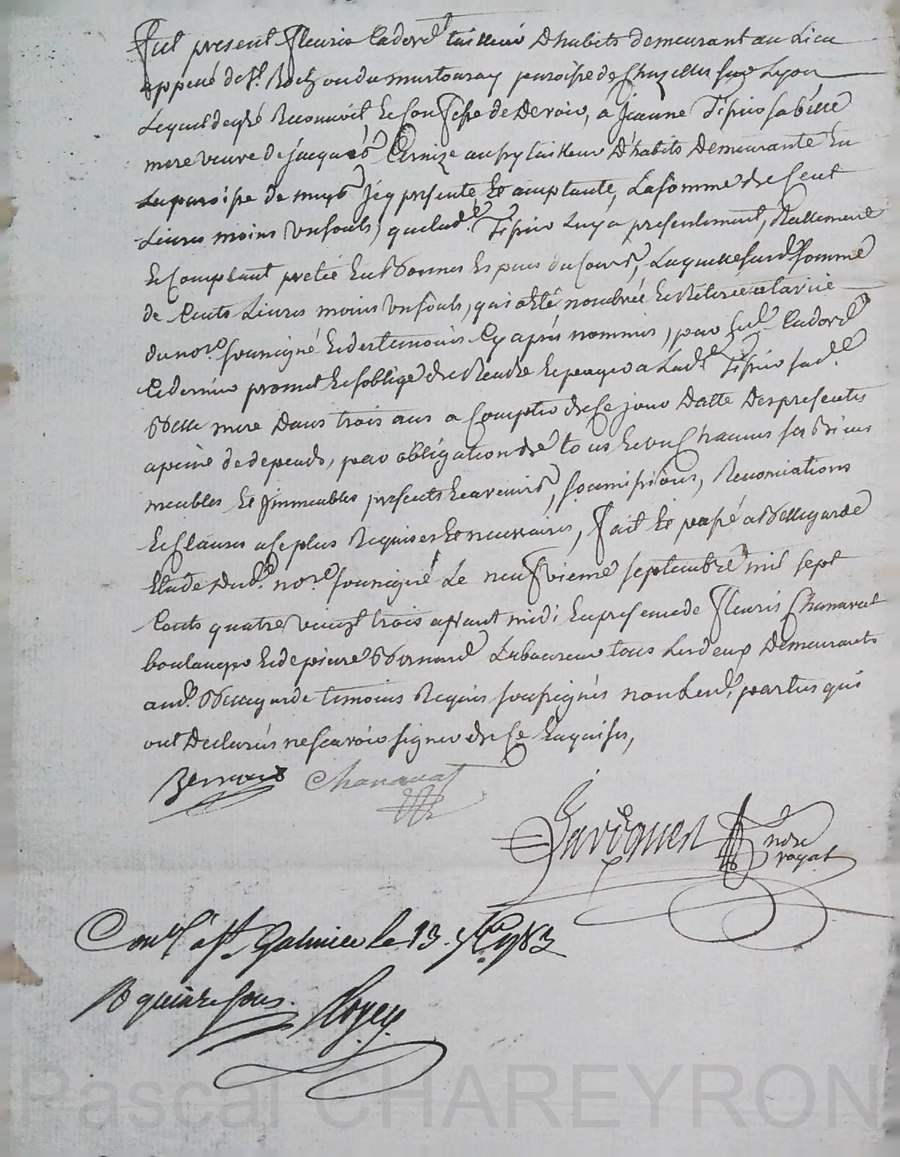 Fut present Fleuris Cadored tailleur D'habits demeurant au Lieu
appellé de St. Roch ou du martouray paroisse de Chazelles sur Lyon
Lequel degré Reconnoit Et Confesse de Devoir, a Jeanne Tissier sa bêlle
mere veuve de jacques Cernize aussy tailleur D'habits Demeurante En
La paroisse de Icy presente Et acceptante, La somme de Cent
Livres moins un sould, que lade. Tissier Luy a presentement, Reellement
Et Comptant pretée En bonnes Especes du Cours, Laquelle susde somme
de Cents Livres moins un sould, qui a Eté nombrée Et Retirée a la vüe
du nore. soussigné Et des temoins Cy après nommés, par Cadored
Ce dernier promet Et s'oblige de Rendre Et payer a Lade. Tissier sade.
Belle mere Dans trois ans a Compter de Ce jour Datte Des presentes
a peine de depends, par obligation de tous Et un Chacuns ses Biens
meubles Et Jmmeubles presents Et avenirs, soumissions, Renonciations
Et Clauses a ce plus Requises Et necessaires, fait Et passé a Bellegarde
Etude Dud. nore. soussigné Le neufvieme septembre mil sept
Cents quatre vingt trois avant midi En presence de Fleuris Chanavat
boulanger Et de pierre Bernard Laboureur tous Les deux Demeurants
aud. Bellegarde temoins Requis soussignés non Lesd. parties qui
ont Declarés ne scavoir signer de Ce Enquises,
Bernard Chanavat
nore
royal
Conlé a st. Galmier le 13 7bre 1783
R quinze sous.
Pascal CHAREYRON